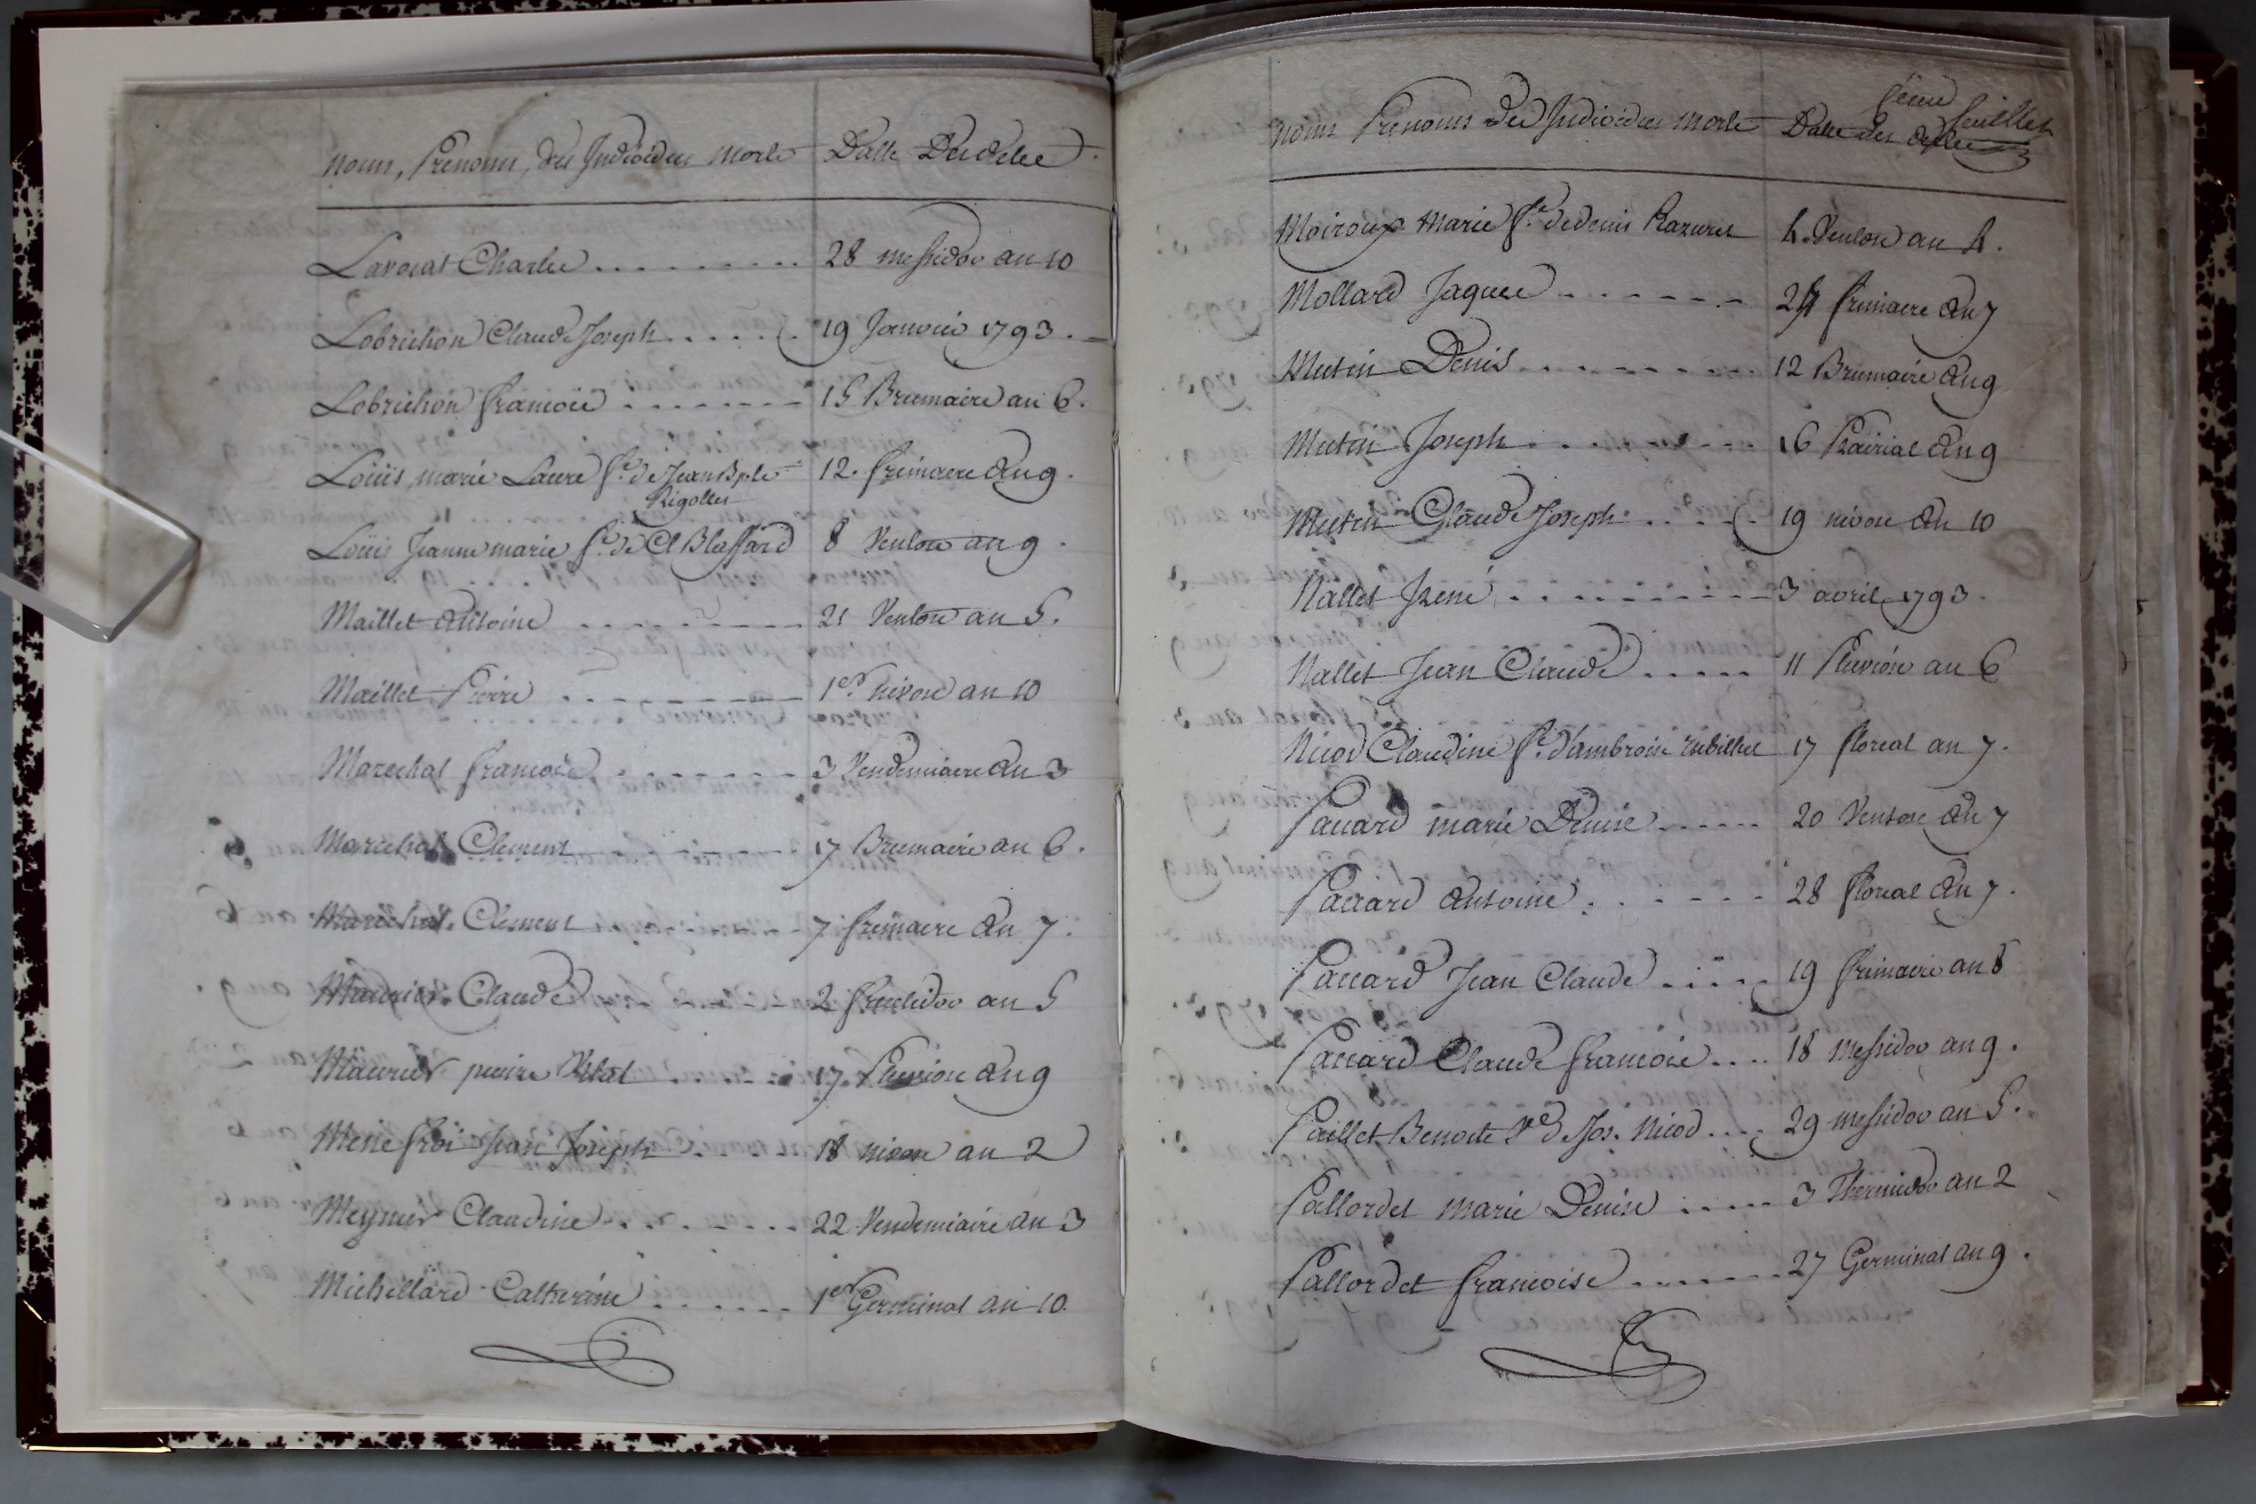 Noms, Prenoms, des Individus morts Datte Des decée
Lavocat Charles 28 messidor an 10
Lobrichon Claude Joseph 19 Janvier 1793.
Lobrichon francois 15 Brumaire an 6.
Loüis marie Laure fe. de Jean Bpte 12. frimaire an 9.
Rigollet
Loüis Jeanne marie fe. de Cl Blassard 8 Ventose an 9.
Maillet antoine 21 Ventose an 5.
Maillet Pierre 1er. nivose an 10
Marechal francoise 3 Vendemiaire an 3
Marechal Clement 17 Brumaire an 6.
Marechal Clement 7 frimaire an 7.
Maurier Claude 2 fructidor an 5
Maurier pierre Vital 17 Pluviose an 9
Menefroi Jean Joseph 18 nivose an 2
Meynier Claudine 22 Vendemiaire an 3
Michillard Catherine 1er Germinal an 10
feuillet
Noms Prenoms des Individus morts Datte des decée
Moiroux Marie fe. de denis Razuret 4. Ventose an 4.
Mollard Jaques 24 frimaire an 7
Mutin Denis 12 Brumaire an 9
Mutin Joseph 16 Prairial an 9
Mutin Claude Joseph 19 nivose an 10
Nallet Iréné 3 avril 1793.
Nallet Jean Claude 11 Pluviose an 6
Nicod Claudine fe. d'ambroise 17 floreal an 7.
Paccard marie Denise 20 Ventose an 7
Paccard antoine 28 floreal an 7.
Paccard Jean Claude 19 frimaire an 8
Paccard Claude francois 18 messidor an 9.
Paillet Benoite Ve de Jos. Nicod 29 messidor an 5.
Pallordet marie Denise 3 Thermidor an 2
Pallordet francoise 27 Germinal an 9.